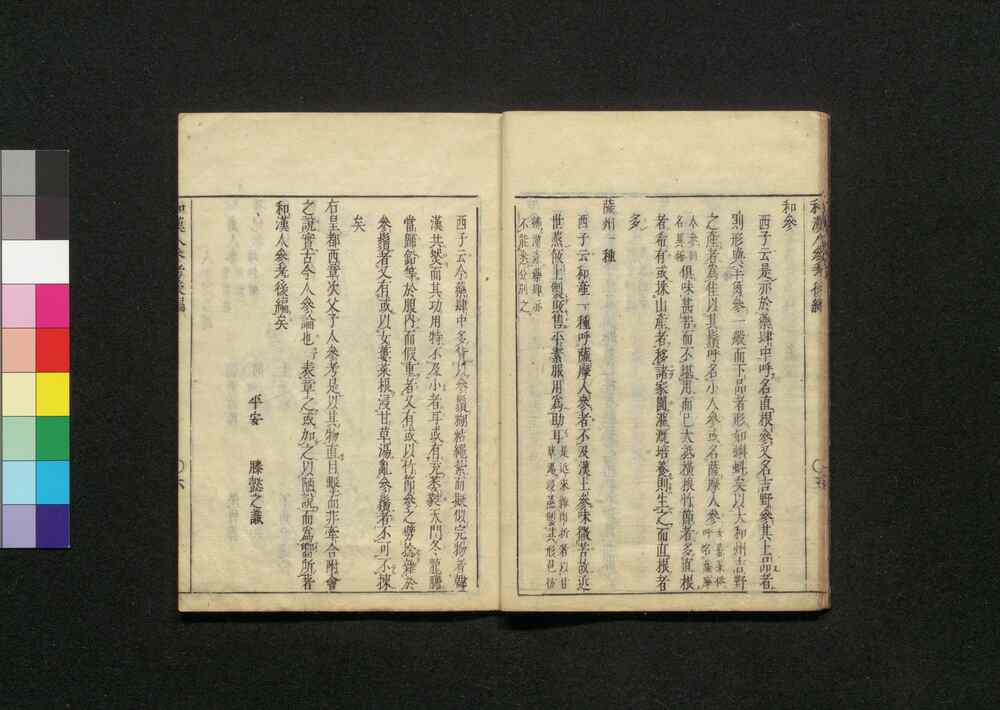 和漢人參考後編
和參
西子云是亦於藥肆中呼名直根參又名吉野參其上品者
則形與三須參一般而下品者形如蝌蚪矣以大和州吉野
之產者為佳以其鬚呼名小人參或名薩摩人參
俱味甚苦而不堪用而已大葢橫根竹節者多直根
者希有或採山產者移諸家園灌漑培養則生之而直根者
多
薩州一種
西子云和產一種呼薩摩人參者不及漢土參味微苦故近
世蒸暾上製販售平素服用為助耳
不能分別之
西子云今藥肆中多以參鬚糊粘繩紮而擬似完物者韓
漢共然而其功用特不及小者耳或有充薺苨天門冬
當歸鉛等於服內而假重者又有或以竹節參之
參鬚者又有或以女萎菜根浸甘草湯亂參鬚者不可不揀
矣
右皇都西意次父了人參考是以其物直目擊而非牽合附會
之說實古今人參論也表章之或加之以隨說而為所著
和漢人參考後編矣
平安 滕懿之識
和漢人參考後編